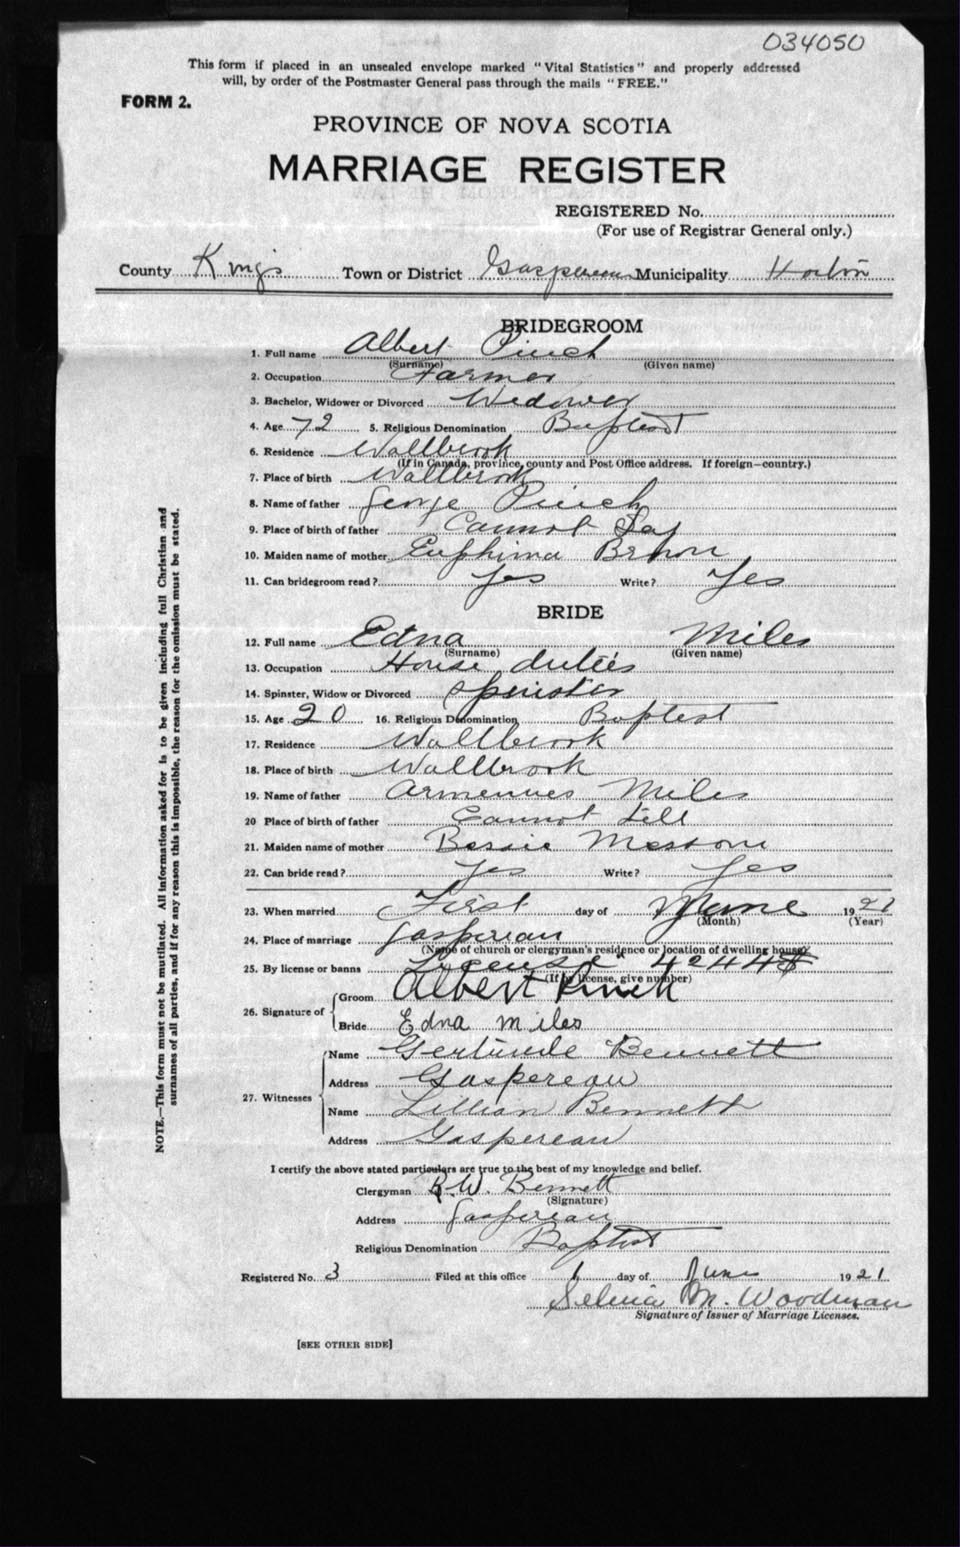 034050
This form if placed in an unsealed envelope marked "Vital Statistics" and properly addressed
will, by order of the Postmaster General pass through the mails "FREE."
FORM 2.
PROVINCE OF NOVA SCOTIA
MARRIAGE REGISTER
REGISTERED No.
(For use of Registrar General only.)
County Kings Town or District Gaspereau Municipality Horton
BRIDEGROOM
1. Full name Albert Pinch
(Surname) (Given name)
2. Occupation Farmer
3. Bachelor, Widower or Divorced Widower
4. Age 72 5. Religious Denomination Baptist
6. Residence Wallbrook
(If in Canada, province, county and Post Office address. If foreign—country.)
7. Place of birth Wallbrook
8. Name of father George Pinch
9. Place of birth of father Cannot Say
10. Maiden name of mother Euphima
11. Can bridegroom read? Yes Write? Yes
BRIDE
12. Full name Edna Miles
(Surname) (Given name)
13. Occupation House duties
14. Spinster, Widow or Divorced Spinster
15. Age 20 16. Religious Denomination Baptist
17. Residence Wallbrook
18. Place of birth Wallbrook
19. Name of father Miles
20 Place of birth of father Cannot tell
21. Maiden name of mother Bessie
22. Can bride read? Yes Write? Yes
23. When married First day of June 1921
(Month) (Year)
24. Place of marriage Gaspereau
(Name of church or clergyman's residence or location of dwelling house)
25. By license or banns License 42448
(If by license, give number)
26. Signature of Groom Albert Pinch
Bride Edna Miles
27. Witnesses Name Gertrude Bennett
Address Gaspereau
Name Lillian Bennett
Address Gaspereau
I certify the above stated particulars are true to the best of my knowledge and belief.
Clergyman R.W. Bennett
(Signature)
Address Gaspereau
Religious Denomination Baptist
Registered No. 3 Filed at this office 1 day of June 1921
M. Woodman
Signature of Issuer of Marriage Licenses.
[SEE OTHER SIDE]
NOTE.—This form must not be mutilated. All information asked for is to be given including full Christian and
surnames of all parties, and if for any reason this is impossible, the reason for the omission must be stated.